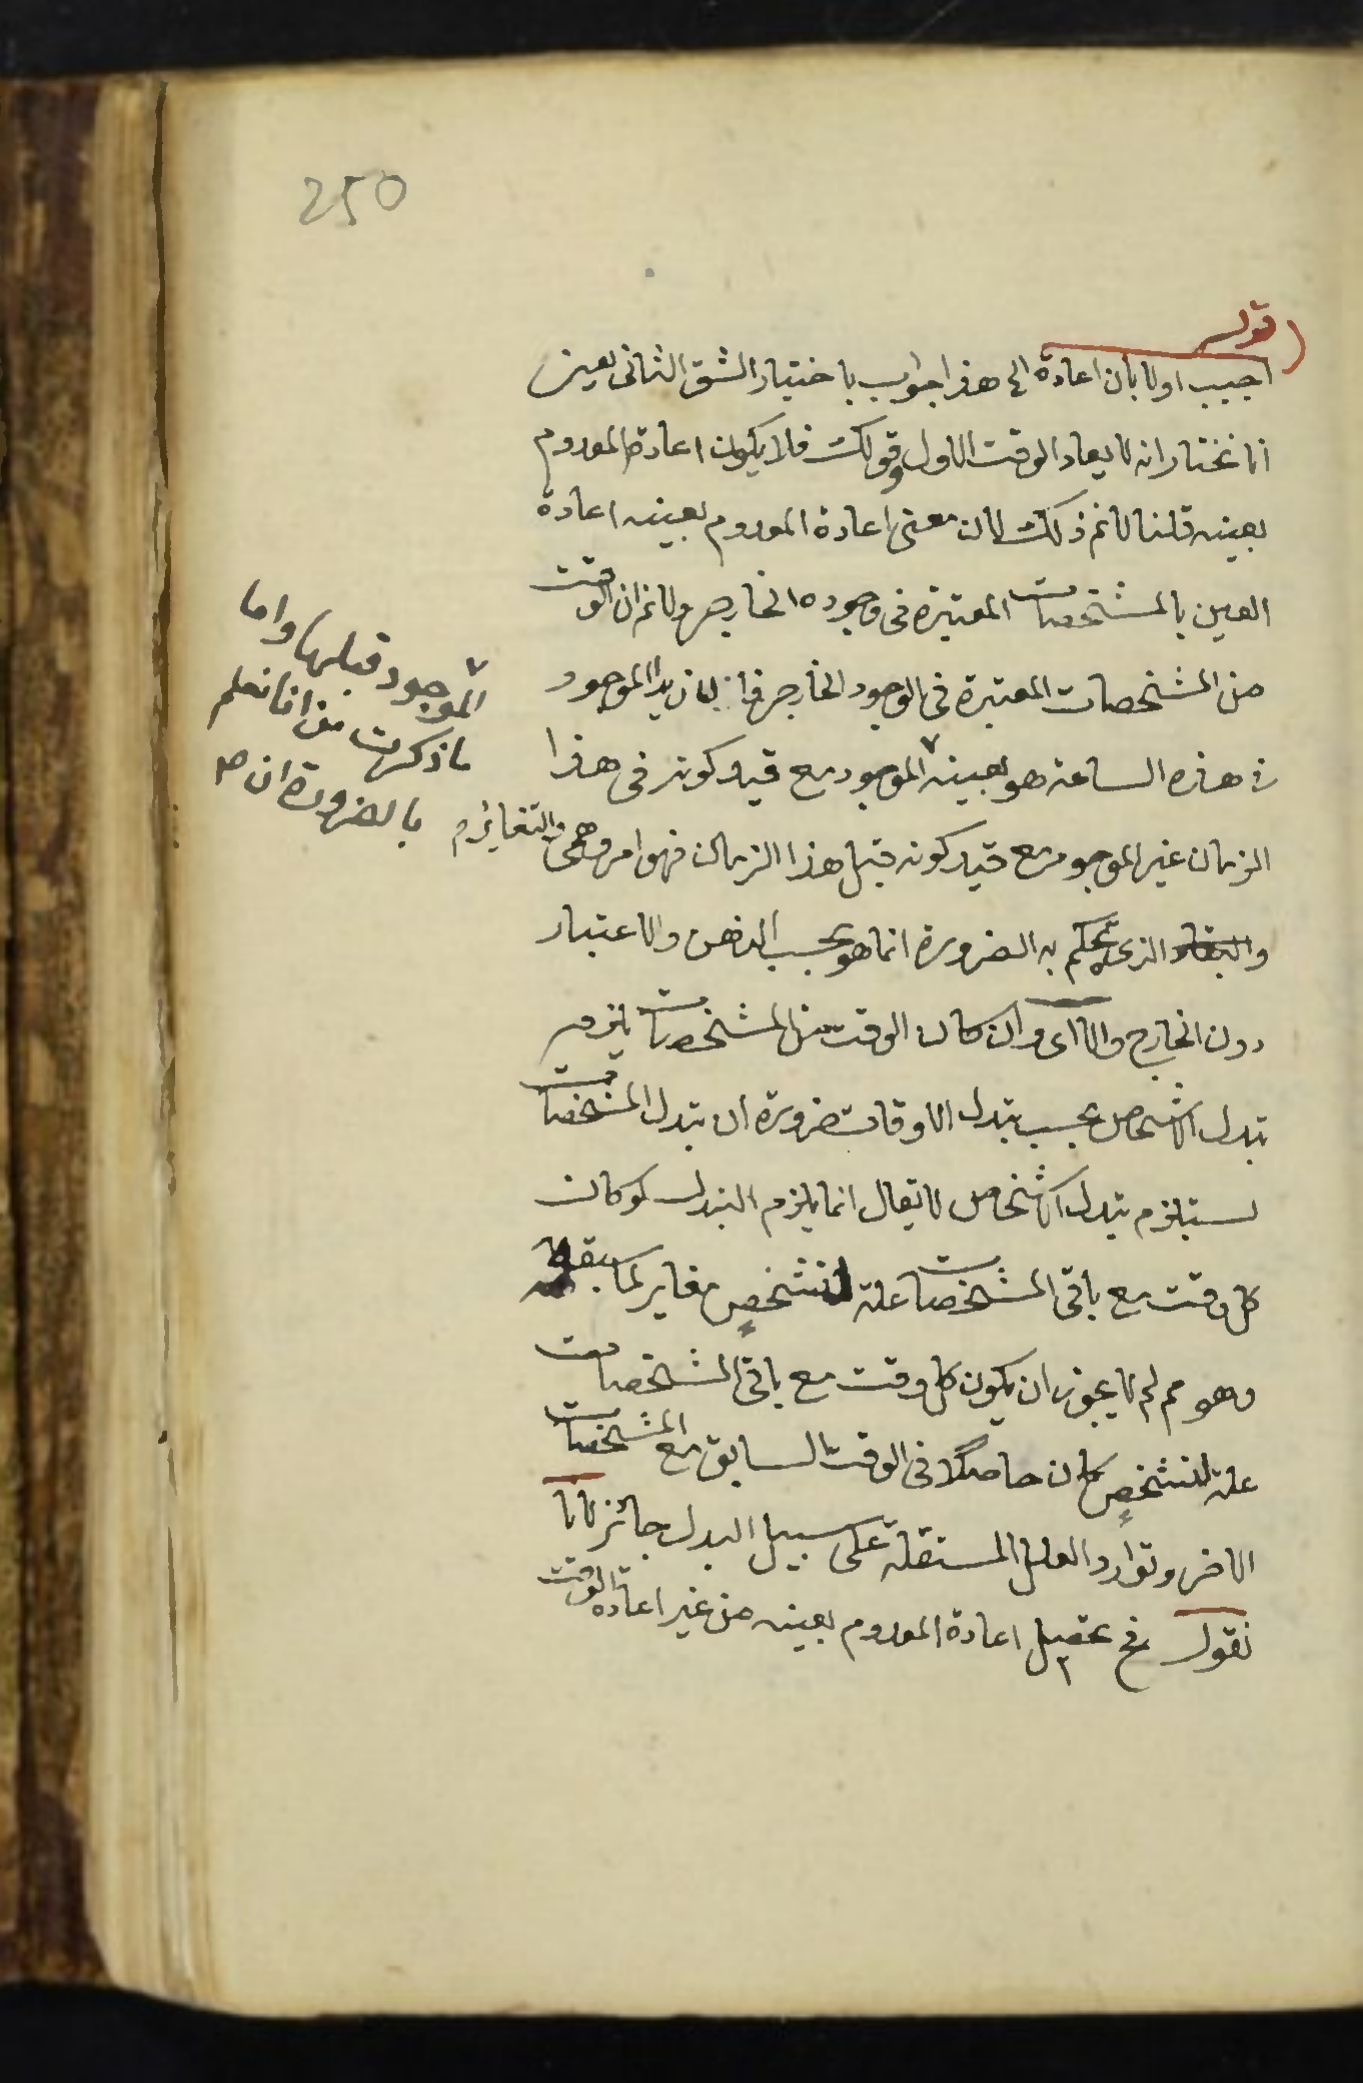 250
قوله
اجيب اولا بان اعادة الخ هذا جواب باختيار الشق الثانى يعنى
انا نختار انه لا يعاد الوقت الاول وقولك فلا يكون اعادة المعدوم
بعينه قلنا لانم ذلك لان معنى اعادة المعدوم بعينه اعادة
العين بالمشخصات المعتبرة فى وجوده الخارجى ولانم ان الوقت
من المشخصات المعتبرة فى الوجود الخارجى فان زيدا الموجود
فى هذه الساعة هو بعينه الموجود مع قيد كونه فى هذا
الموجود قبلها واما
ما ذكرت من انا نعلم
بالضرورة ان
الزمان غير الموجود مع قيد كونه قبل هذا الزمان فهو امر وهمى والتغاير
الذى يحكم به الضرورة انما هو بحسب الذهن والاعتبار
دون الخارج والا اى وان كان الوقت من المشخصات يلزم
تبدل الاشخاص بحسب تبدل الاوقات ضرورة ان تبدل المشخصات
يستلزم تبدل الاشخاص لا يقال انما يلزم التبدل لو كان
كل وقت مع باقى المشخصات علة لتشخص مغاير لما سبقه
وهو مم لم لا يجوز ان يكون كل وقت مع باقى المشخصات
علة لتشخص كان حاصلا فى الوقت السابق مع المشخصات
الاخر وتوارد العلل المستقلة على سبيل البدل جائز لانا
نقول فح يحصل اعادة المعدوم بعينه من غير اعادة الوقت